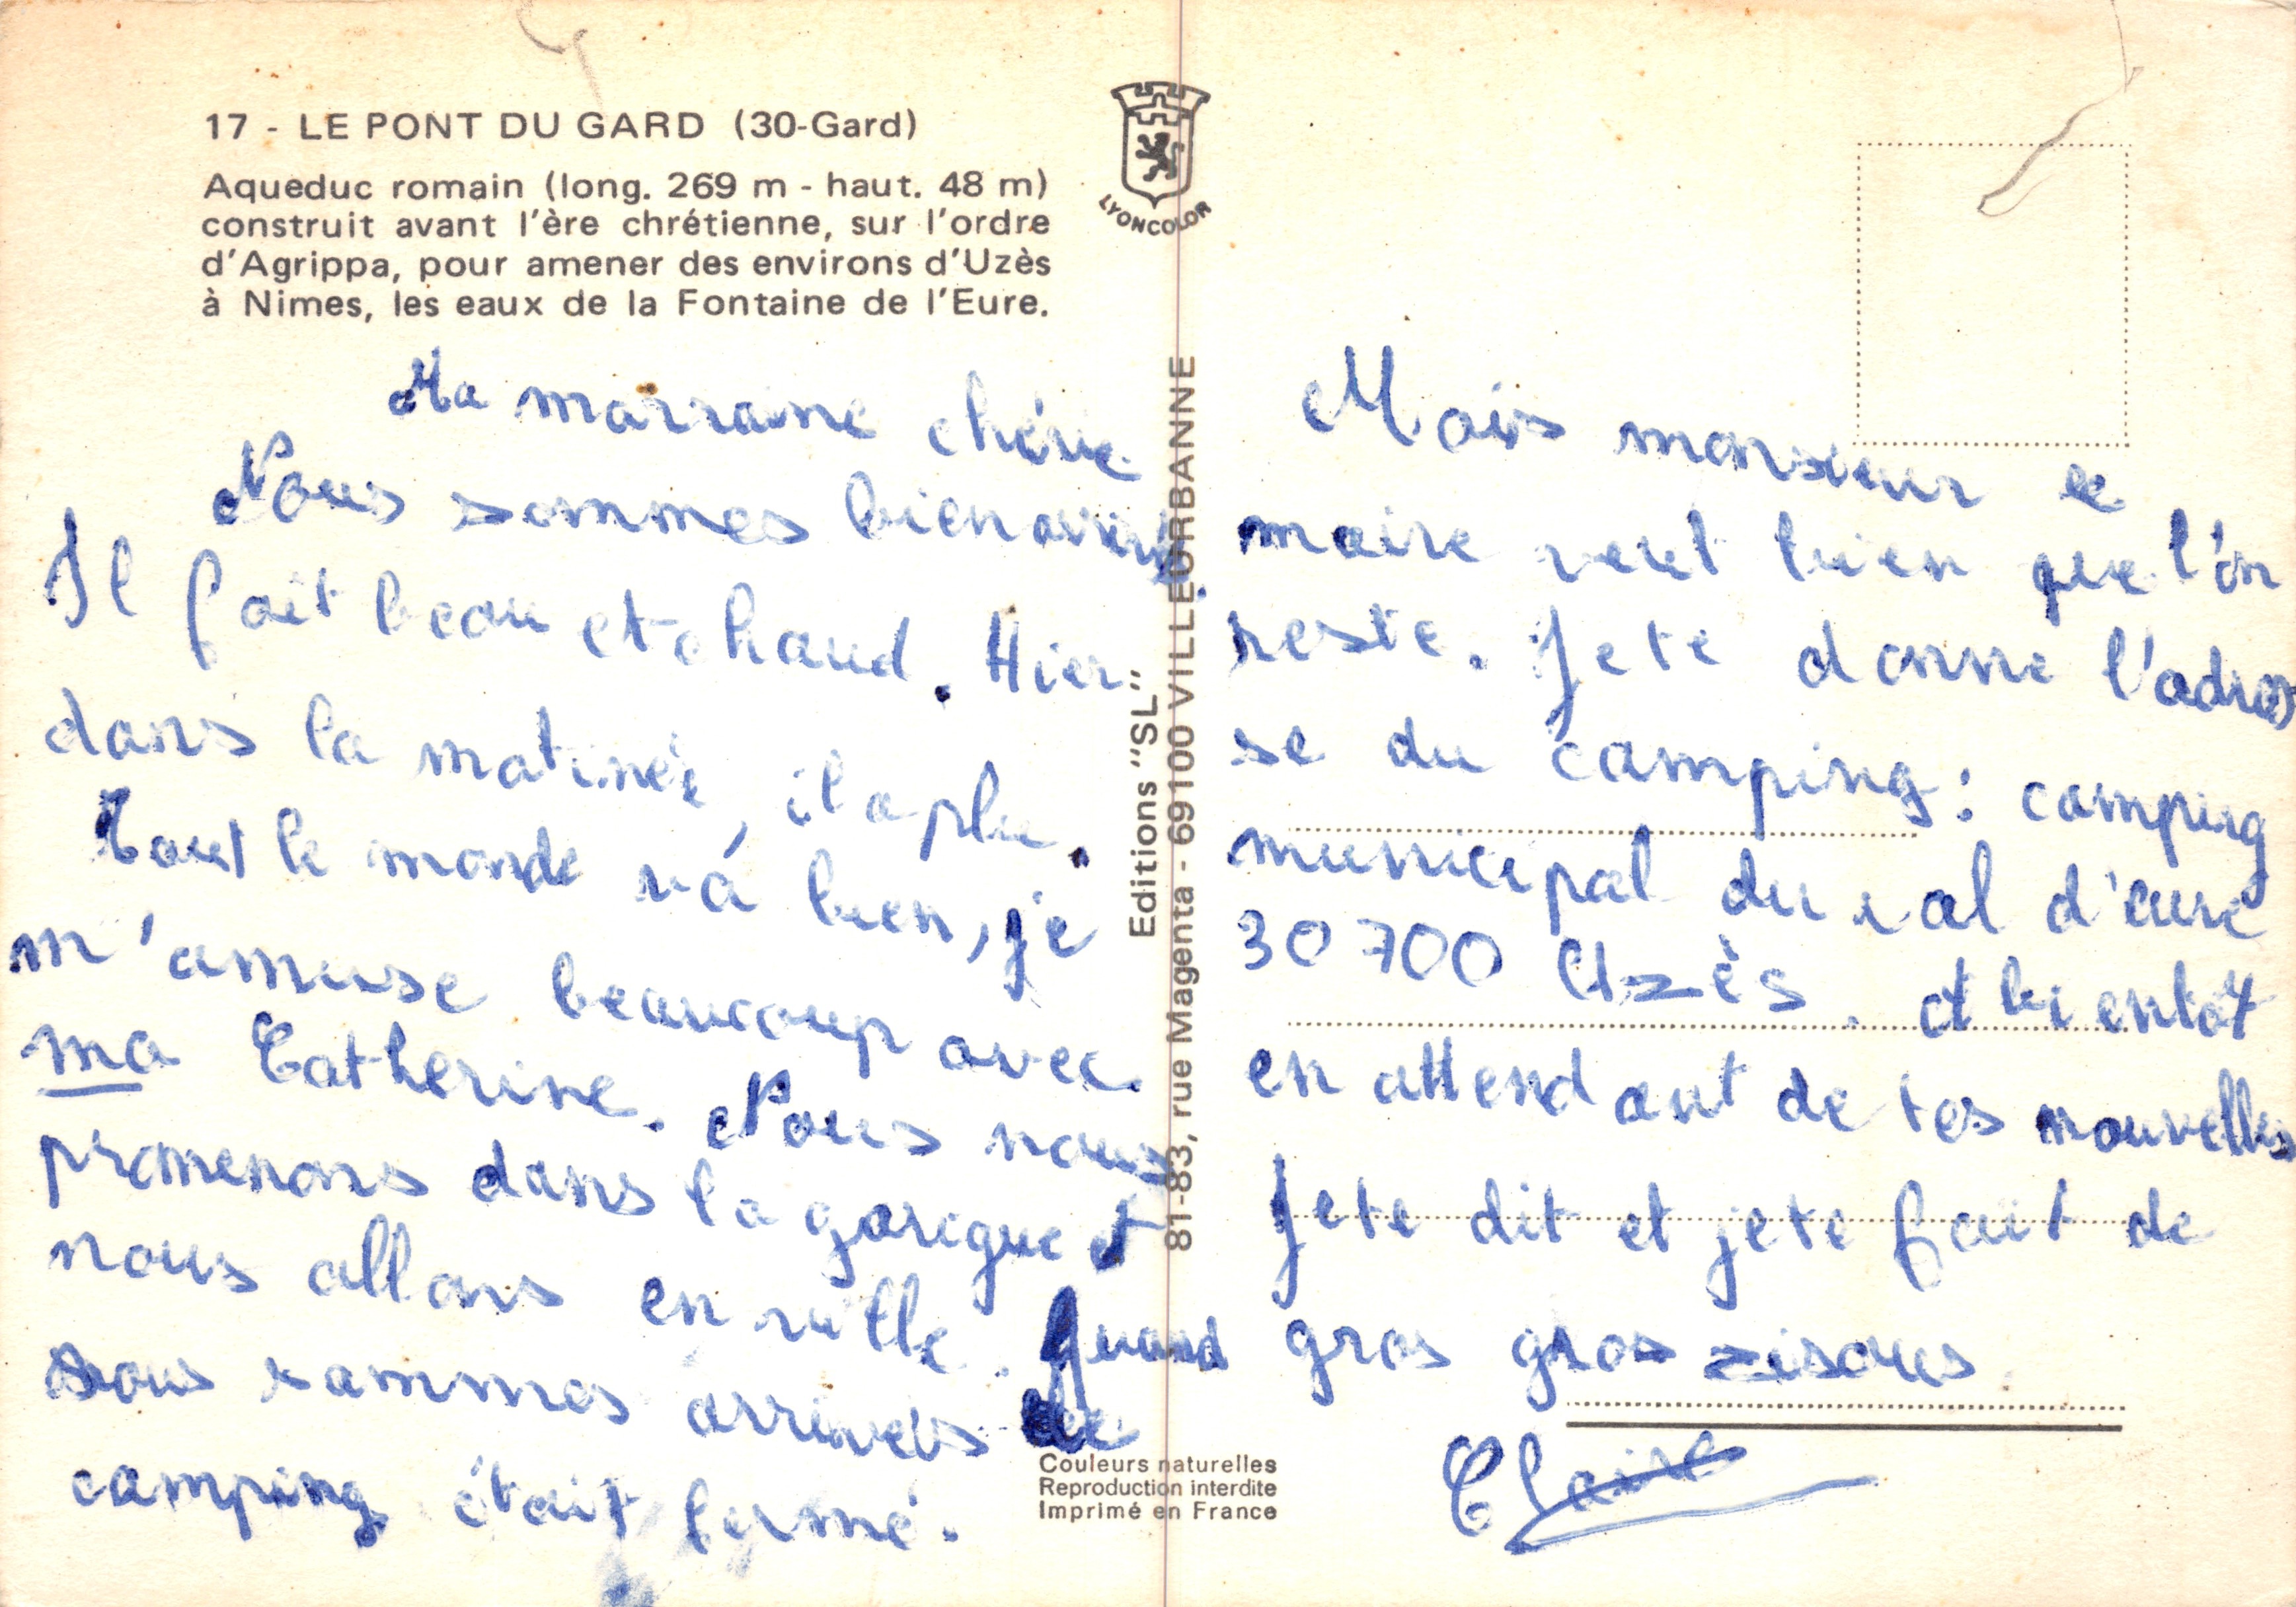 17 - LE PONT DU GARD (30-Gard)
Aqueduc romain (long. 269 m - haut. 48 m)
construit avant l'ère chrétienne, sur l'ordre
d'Agrippa, pour amener des environs d'Uzès
à Nimes, les eaux de la Fontaine de l'Eure.
LYONCOLOR
Ma marraine chérie
Nous sommes bien arrivés.
Il fait beau et chaud. Hier
dans la matinée, il a plu.
Tout le monde vá bien, je
m'amuse beaucoup avec
ma Catherine. Nous nous
promenons dans la garigue et
nous allons en ville. Quand
nous sommes arrivés le
camping était fermé.
Editions "SL"
81-83, rue Magenta - 69100 VILLEURBANNE
Couleurs naturelles
Reproduction interdite
Imprimé en France
Mais monsieur le
maire veut bien que l'on
reste. Je te donne l'adres
se du camping : camping
municipal du val d'eure
30700 Uzès. A bientôt
en attendant de tes nouvelles
Je te dit et je te fait de
gros gros zisous.
Claire